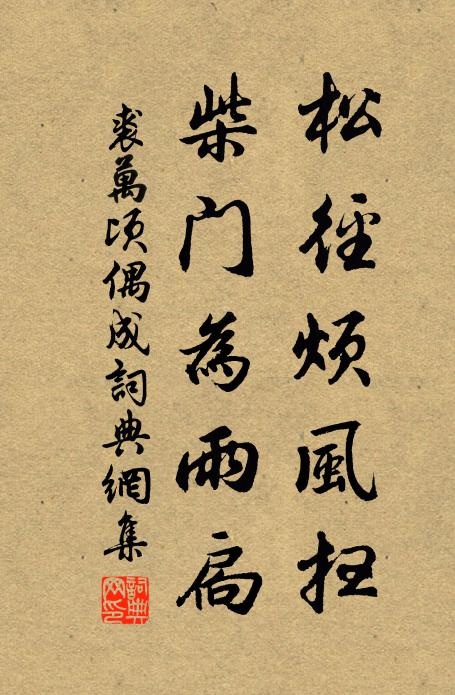 松徑煩風扫
柴門為雨扃
裘萬頃偶成詞典網集
詞典
网印